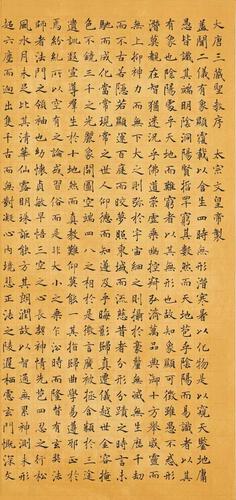 大唐三藏聖教序　太宗文皇帝製
蓋聞二儀有象顯覆載以含生四時無形潛寒暑以化物是以窺天鑒地庸
愚皆識其端明陰洞陽賢哲罕窮其數然而天地苞乎陰陽而易識者以其
有象也陰陽處乎天地而難窮者以其無形也故知象顯可徵雖愚不惑形
潛莫覩在智猶迷況乎佛道崇虛乘幽控寂弘濟萬品典御十方舉威靈而
無上抑神力而無下大之則彌於宇宙細之則攝於豪釐無滅無生歷千劫
而不古若隱若顯運百而皎夢照東域而流慈昔者分形分跡之時言未
馳而成化當常現常之世人仰德而知遵及乎晦影歸真遷儀越世金容掩
色不鏡三千之光麗象開圖空端四八之相於是微言廣被拯含類於三途
遺訓遐宣導羣生於十地然而真教難仰莫能一其指歸曲學易遵邪正於
焉紛糺所以空有之論或習俗而是非大小之乘乍沿時而隆替有玄奘法
師者法門之領袖也幼懷貞敏早悟三空之心長契神情先苞四忍之行松
風水月未足比其清華仙露明珠詎能方其朗潤故以智通無累神測未形
超六塵而迥出隻千古而無對凝心內境悲正法之陵遲栖慮玄門慨深文